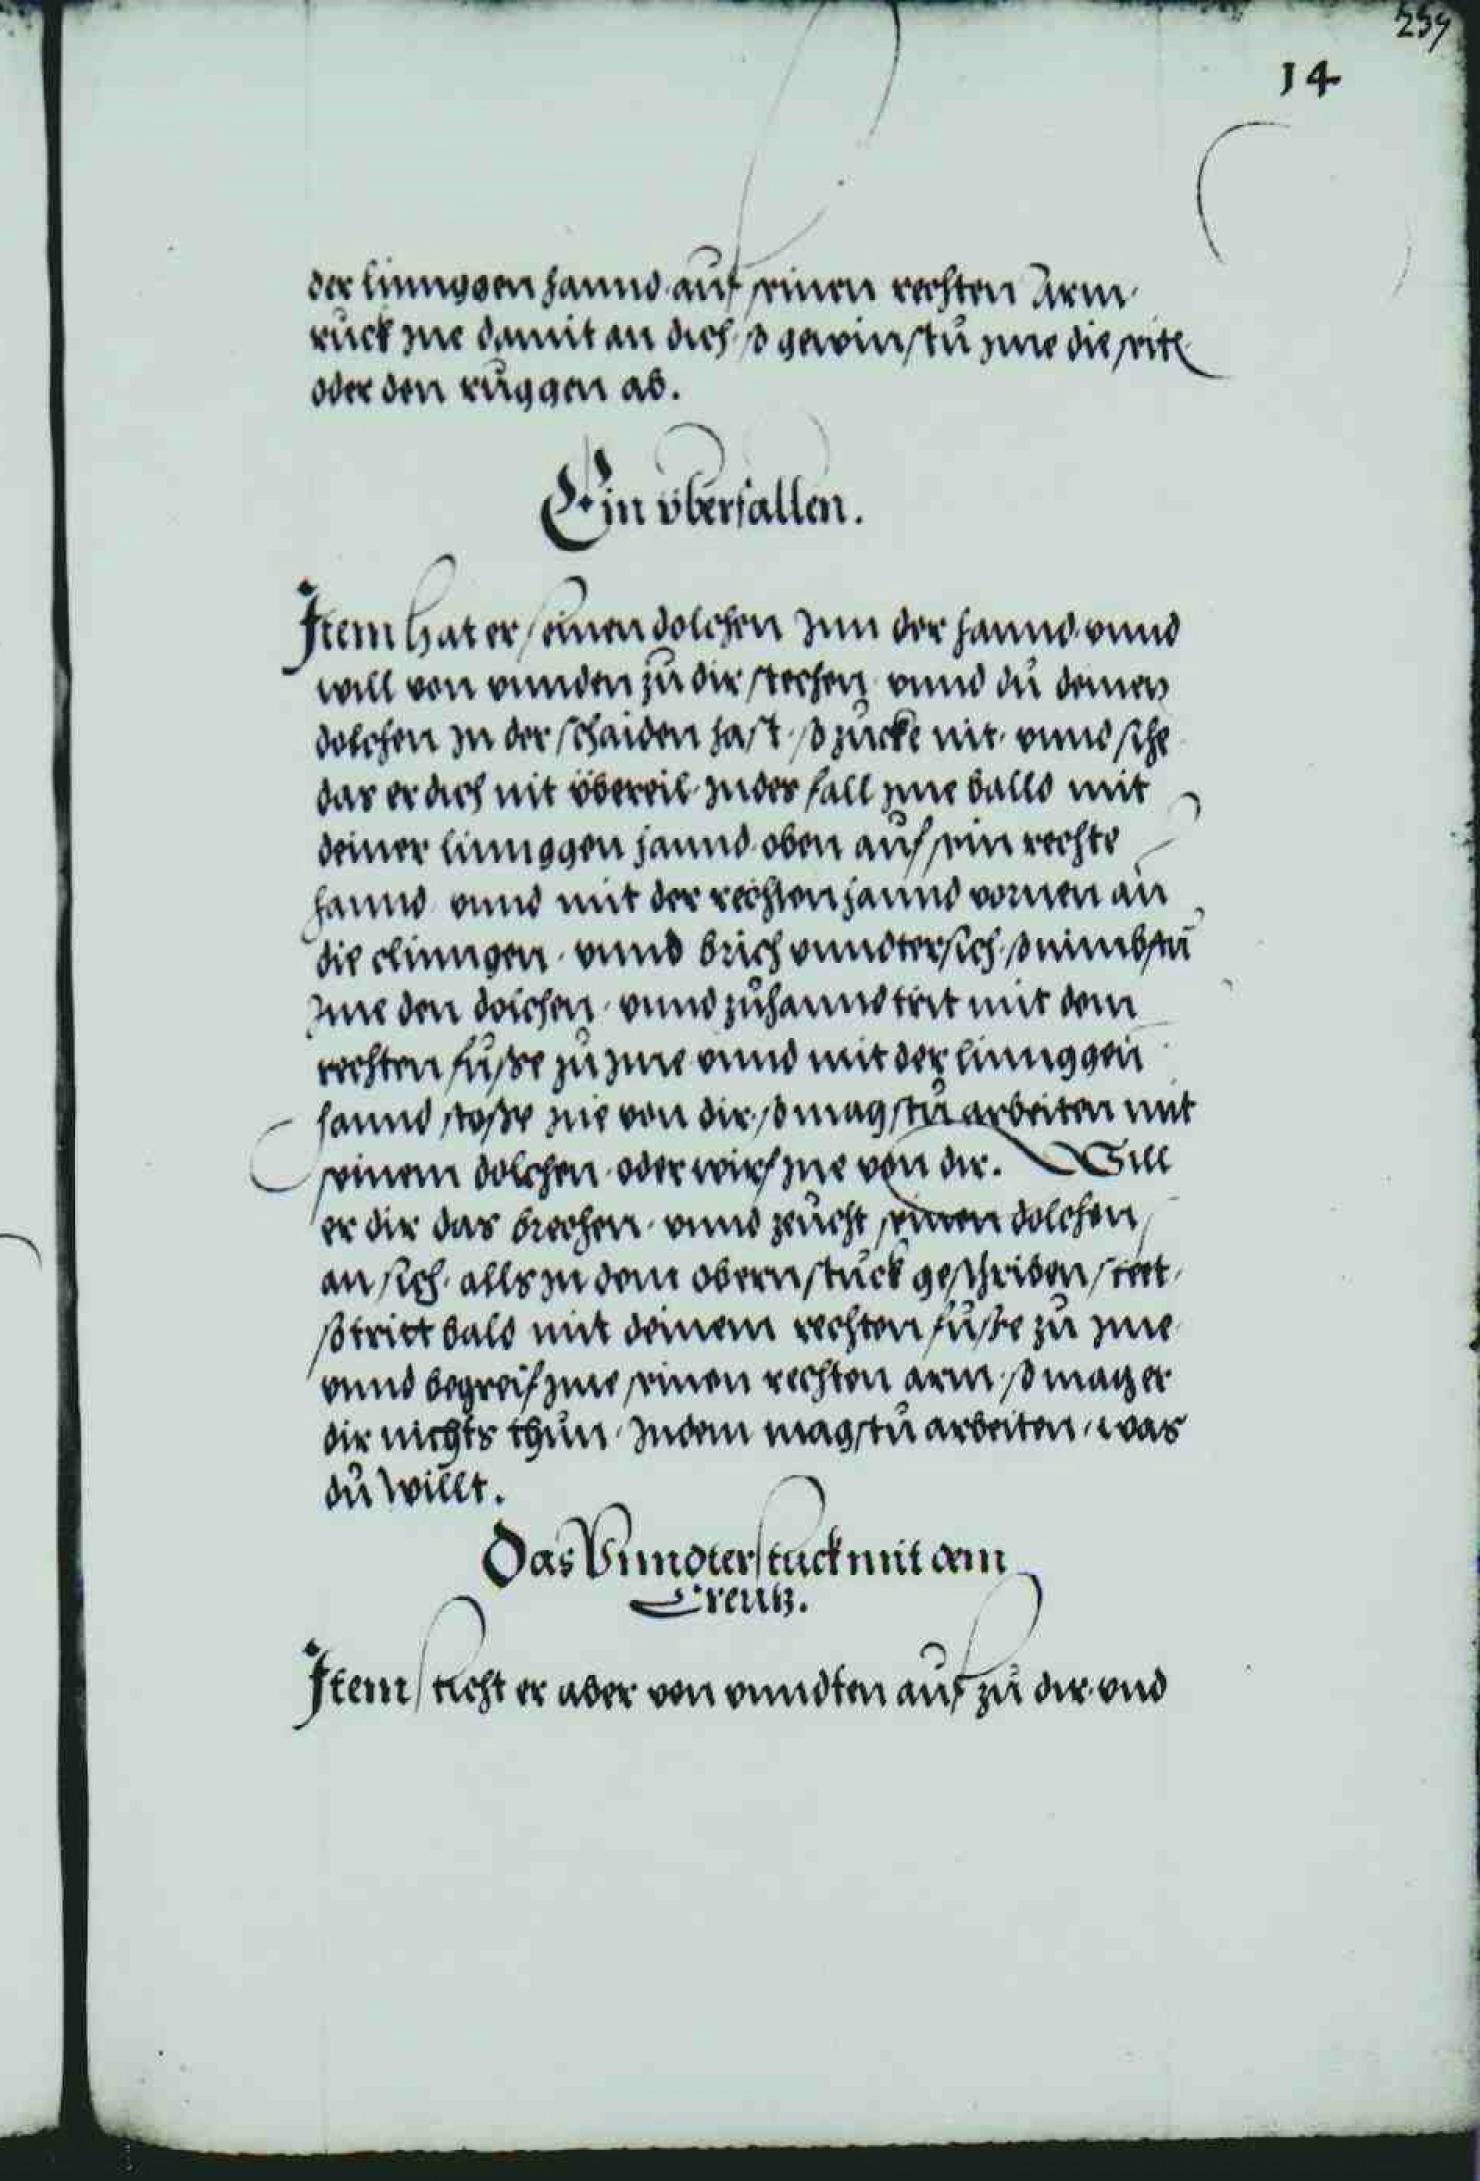 259
14
der linnggen hannd auf seinen rechten Arm,
ruck jne damit an dich, so gewinstu jme die seite
oder den ruggen ab.
Ein überfallen.
Item hat er seinen dolchen jnn der hannd, vnnd
will von vnnden zu dir stechen, vnnd du deinen
dolchen jn der schaiden hast, so zucke nit, vnnd sihe
das er dich nit übereil, jndes fall jme balld mit
deiner linnggen hannd oben auf sein rechte
hannd, vnnd mit der rechten hannd vornen an
die clinngen, vnnd brich vnndtersich, so nimbstu
jme den dolchen, vnnd zuhannd trit mit dem
rechten fusse zu jme vnnd mit der linnggen
hannd stosse jne von dir, so magstu arbeiten mit
seinem dolchen, oder wirf jne von dir. Will
er dir das brechen, vnnd zeucht seinen dolchen
an sich, alls jn dem obern stuck geschriben steet,
so tritt bald mit deinem rechten fusse zu jme
vnnd begreif jme seinen rechten arm, so mag er
dir nichts thun, jndem magstu arbeiten, was
du willt.
Das Vnndterstuck mit dem
Creutz.
Item sticht er aber von vnndten auf zu dir, vnd